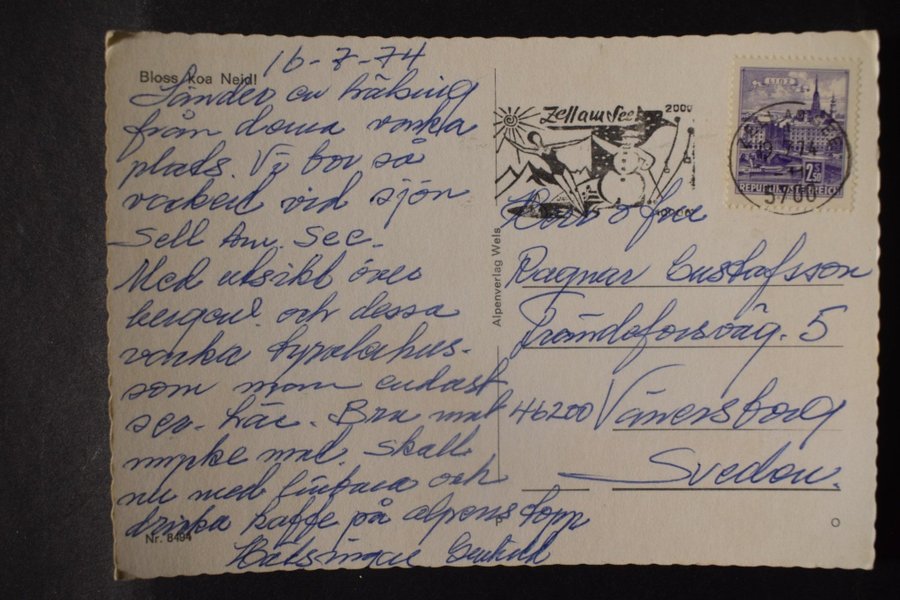 Bloss koa Neid!
16-7-74
Sänder en hälsning
från denna vackra
plats. Vi bor så
vackert vid sjön
Sell Am. See.
Med utsikt över
bergen och dessa
vackra tyrolahus.
som man endast
ser här. Bra mat
mycke mat. Skall
nu med linbana och
dricka kaffe på alpens topp
Hälsningar
Nr. 8494
Alpenverlag Wels
Zell am See
2000
LINZ
REPUBLIK ÖSTERREICH
2.50
5700
Herr o fru
Ragnar Gustafsson
5
46200 Vänersborg
Sveden.